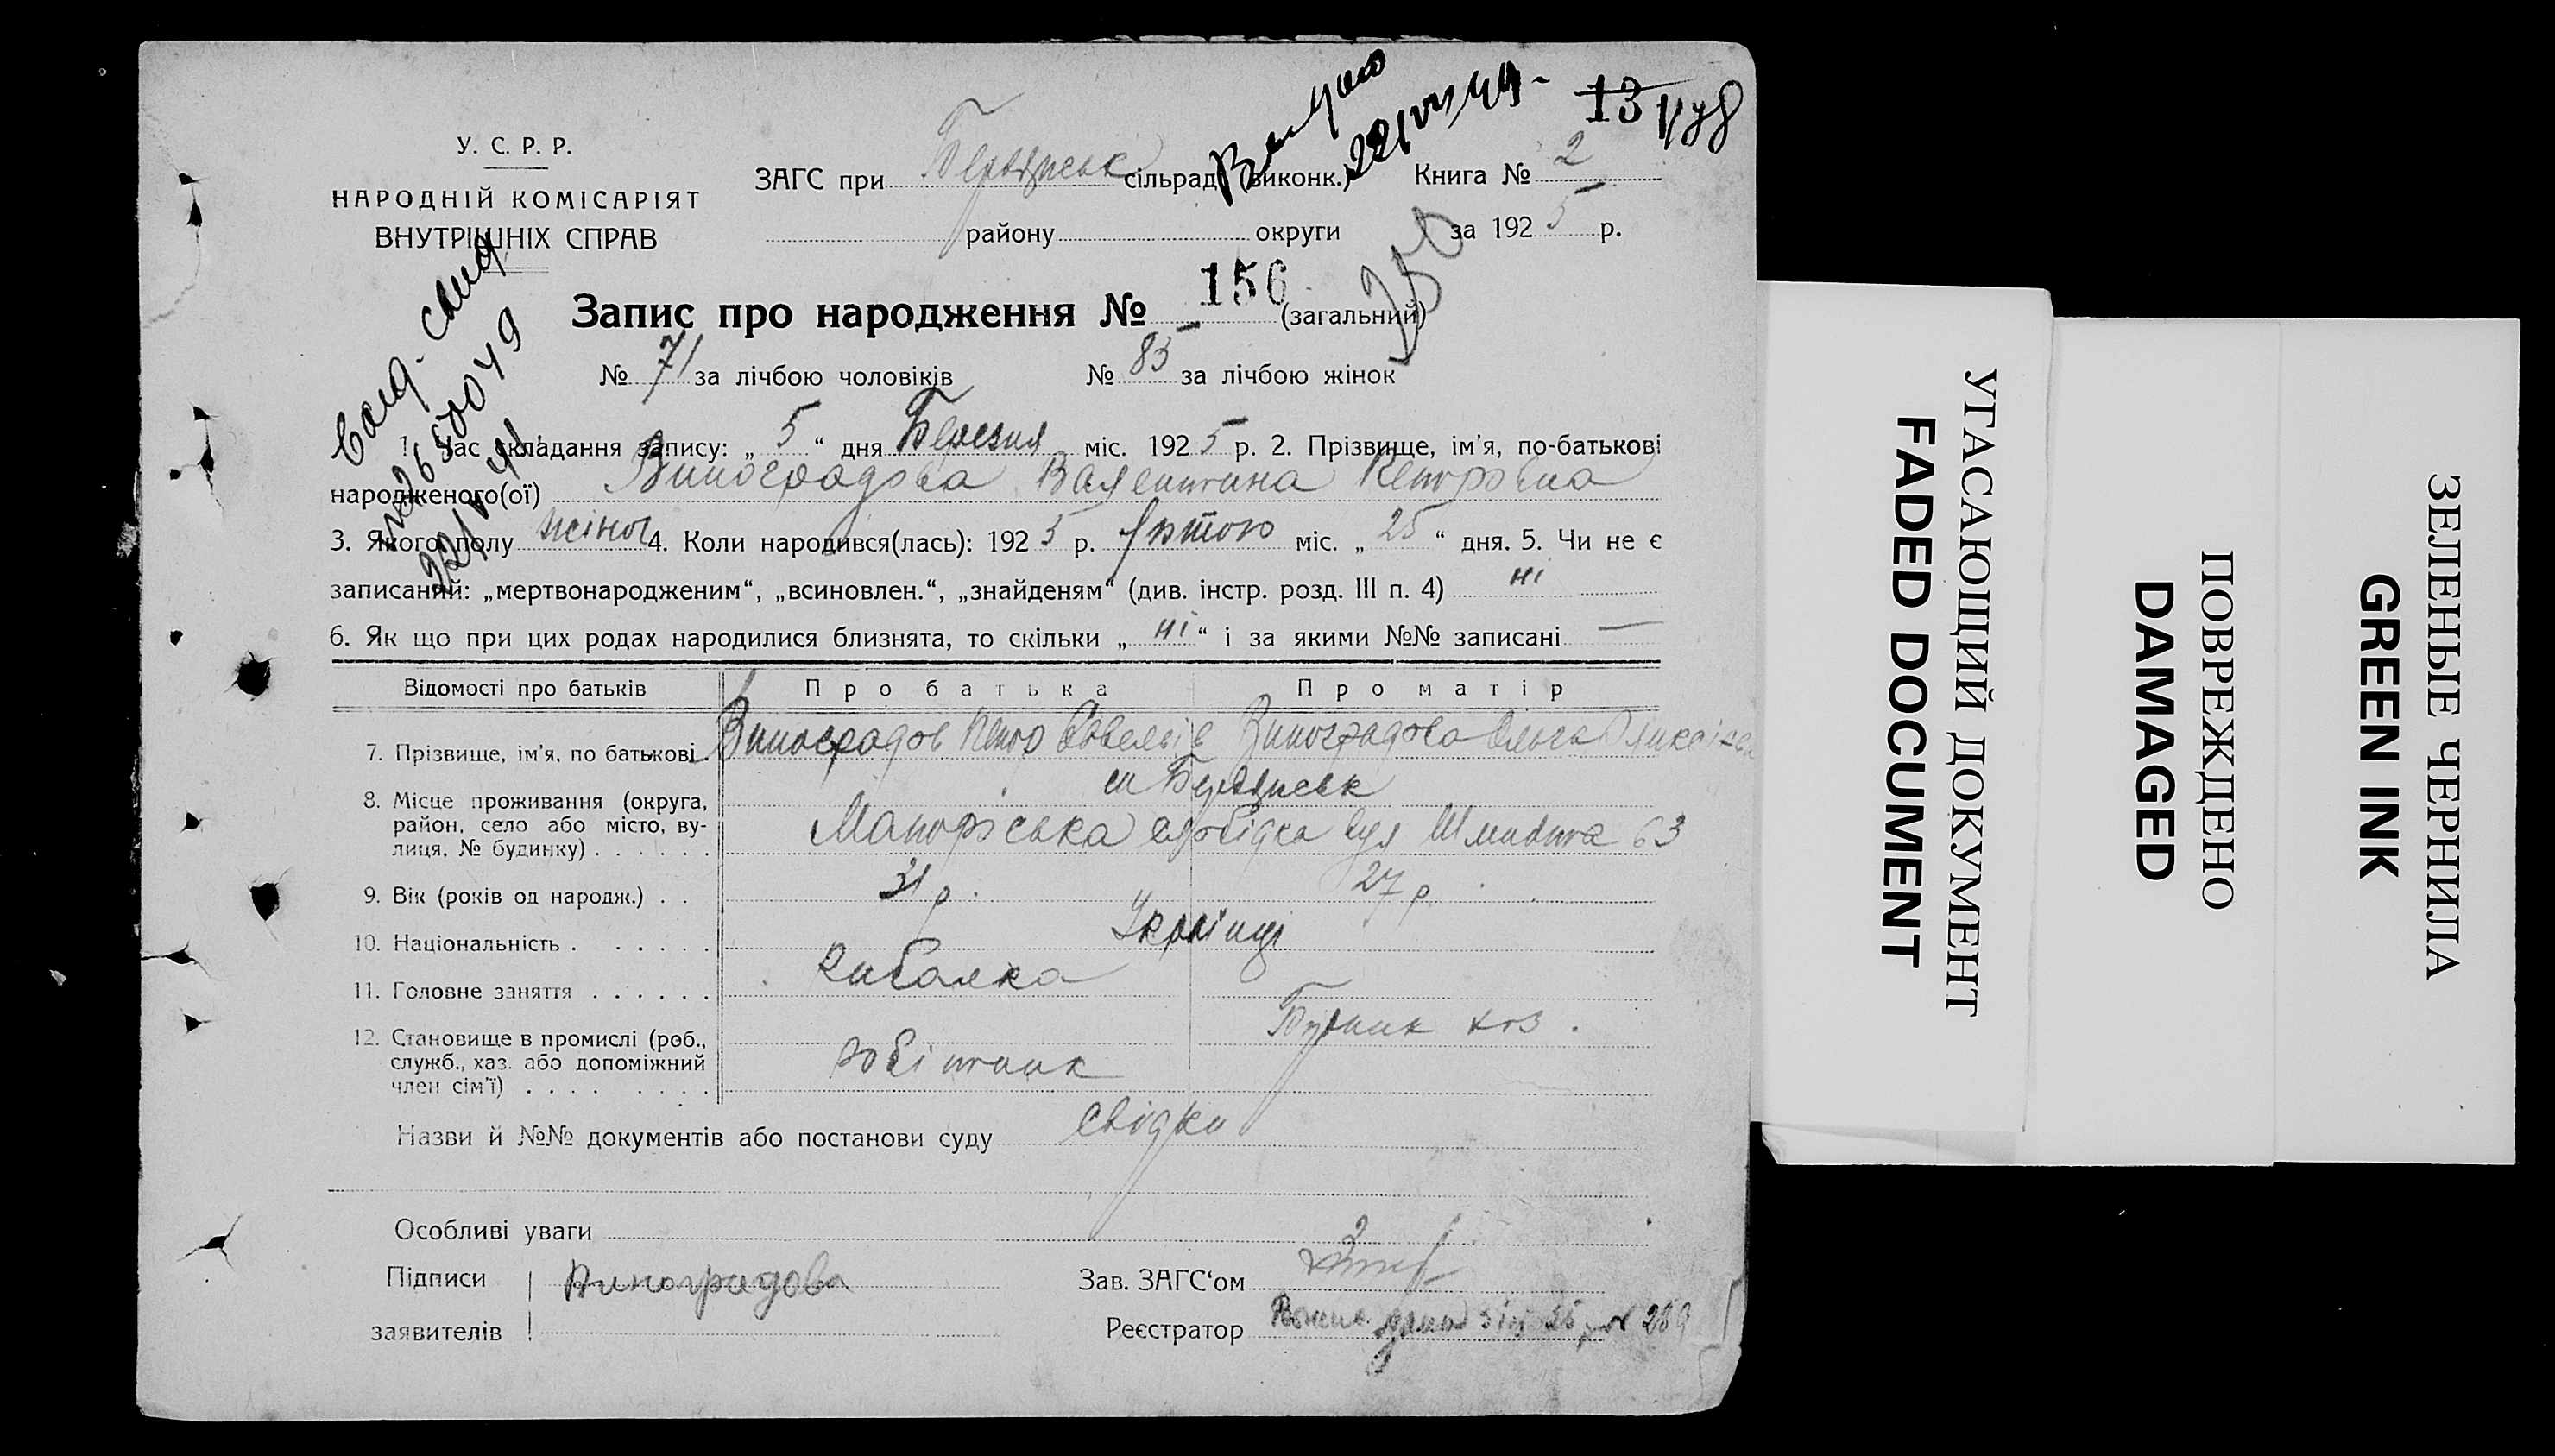 13
У. С. Р. Р.
НАРОДНІЙ КОМІСАРІЯТ
ВНУТРІШНІХ СПРАВ
ЗАГС при Бердянськ сільраді (виконк.) Книга № 2
району округи за 1925 р.
Запис про народження № 156 (загальний)
№ 71 за лічбою чоловіків № 85 за лічбою жінок
1. Час складання запису: „5“ дня Березня міс. 1925 р. 2. Прізвище, ім'я, по-батькові
народженого(ої) Виноградова Валентина
3. Якого полу жіноч 4. Коли народився(лась): 1925 р. Лютого міс. „25“ дня. 5. Чи не є
записаний: „мертвонародженим“, „всиновлен.“, „знайденям“ (див. інстр. розд. III п. 4) ні
6. Як що при цих родах народилися близнята, то скільки „ні“ і за якими №№ записані —
Відомості про батьків Про батька Про матір
7. Прізвище, ім'я, по батькові Виноградов Виноградова Ольга
м Бердянськ
8. Місце проживання (округа,
район, село або місто, ву-
лиця, № будинку) слобідка вул Шмидта 63
9. Вік (років од народж.) 31 р. 27 р.
10. Національність Українці
11. Головне заняття Рибалка
12. Становище в промислі (роб.,
служб., хаз. або допоміжний
член сім'ї) робітник
Назви й №№ документів або постанови суду свідки
Особливі уваги
Підписи Виноградова Зав. ЗАГС'ом
заявителів Реєстратор
УГАСАЮЩИЙ ДОКУМЕНТ
FADED DOCUMENT
ПОВРЕЖДЕНО
DAMAGED
ЗЕЛЕНЫЕ ЧЕРНИЛА
GREEN INK